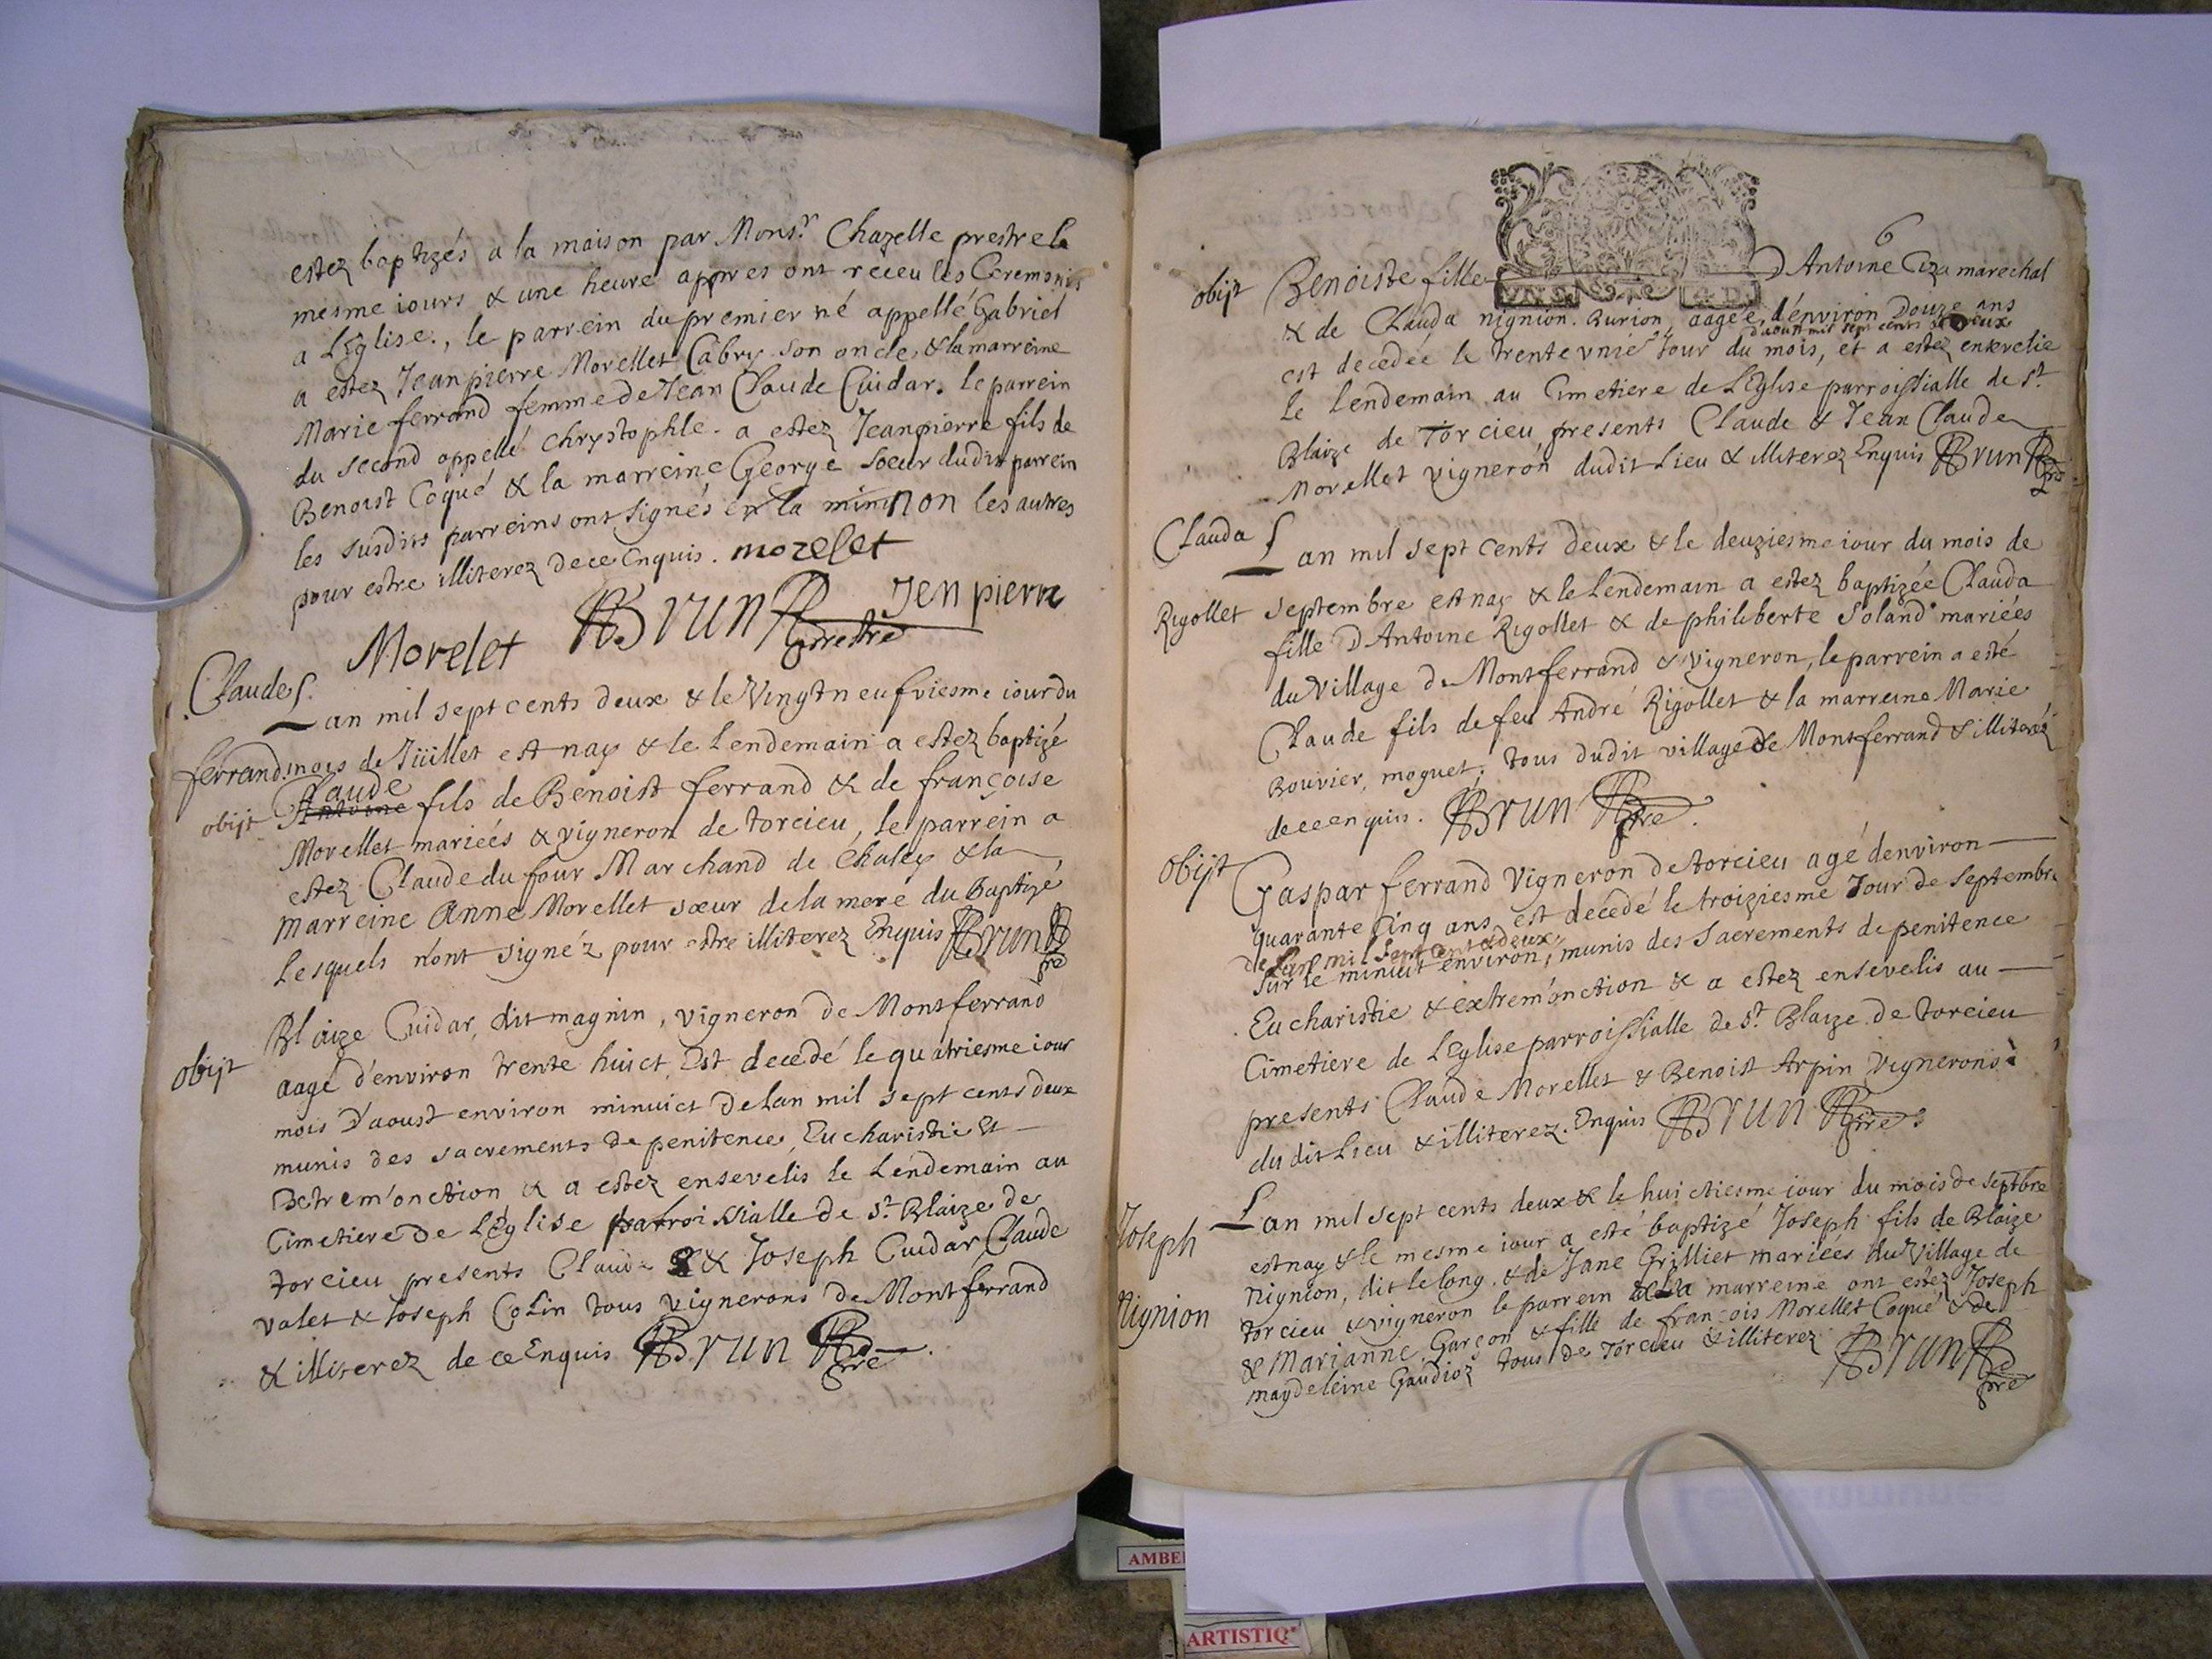 estez baptizés a la maison par Mons.r Chazelle prestre le
mesme iours & une heure appres ont receu les Ceremonies
a L'Eglise., le parrein du premier né appellé Gabriel
a estez Jeanpierre Morellet Cabry son oncle, & la marreine
Marie ferrand femme de Jean Claude Cuidar. le parrein
du second appellé chrystophle. a estez Jeanpierre fils de
Benoist Coqué & la marreine George soeur dudit parrein
les susdits parreins ont signés en la min non les autres
pour estre illiterez de ce Enquis. morelet
Jen pierre
Morelet Brun prestre
Claude
Lan mil sept cents deux & le Vingtneufviesme iour du
ferrand. mois de Juillet est nay & le Lendemain a estez baptizé
Claude
obijt Antoine fils de Benoist ferrand & de françoise
Morellet mariéés & vigneron de torcieu, le parrein a
estez Claude dufour Marchand de Chaley & la
marreine Anne Morellet sœur de la mere du Baptizé
Lesquels n'ont signéz pour estre illiterez Enquis Brun
pre
Blaize Cuidar, dit magnin, vigneron de Montferrand
obijt aagé d'environ trente huict, Est decedé le quatriesme iour
mois D'aoust environ minuict De lan mil sept cents deux
munis des sacrements de penitence, Eucharistie Et
Extrem'onction & a estez ensevelis le Lendemain au
Cimetiere de L'Eglise parroissialle de st. Blaize de
torcieu presents Claude & Joseph Cuidar Claude
valet & Joseph Colin tous vignerons de Montferrand
& illiterez de ce Enquis Brun pre
6
obijt Benoiste fille D'Antoine Ciza marechal
VN S. 4 D.
& de Clauda nignion. Burion, aagée, d'environ Douze ans
daoust mil sept cents Deux
est decedée le trente vnie Jour du mois, et a estez enkvelie
le lendemain au Cimetiere de L'Eglise parroissialle de st.
Blaize de Torcieu, presents Claude & Jean Claude
Morellet vigneron dudit Lieu & illiterez Enquis Brun pre
Clauda Lan mil sept cents deux & le deuziesme iour du mois de
Rigollet septembre est nay & le Lendemain a estez baptizée Clauda
fille D'Antoine Rigollet & de philiberte Soland mariées
du Village de Montferrand & vigneron, le parrein a esté
Claude fils de feu André Rigollet & la marreine Marie
Bouvier, moguet, tous dudit village de Montferrand & illiterez
de ce enquis. Brun pre.
obijt Gaspar ferrand Vigneron de torcieu agé denviron
quarante cinq ans est decedé le troiziesme Jour de septembre
de Lan mil sept cent deux
sur le minuit environ, munis des sacrements de penitence
Eucharistie & extrem'onction & a estez ensevelis au
Cimetiere de L'Eglise parroissialle de st. Blaize de torcieu
presents Claude Morellet & Benoist Arpin Vignerons
du dit Lieu & illiterez. Enquis Brun pre
Joseph Lan mil sept cents deux & le huictiesme iour du mois de septbre
est nay & le mesme iour a esté baptizé Joseph fils de Blaize
nignion, dit lelong, & de Jane Grilliet mariéés du Village de
Nignion torcieu & vigneron le parrein & la marreine ont estez Joseph
& Marianne Garçon & fille de françois Morellet Coqué & de
magdeleine Gaudioz tous de Torcieu & illiterez Brun
pre
AMBE
ARTISTIQ